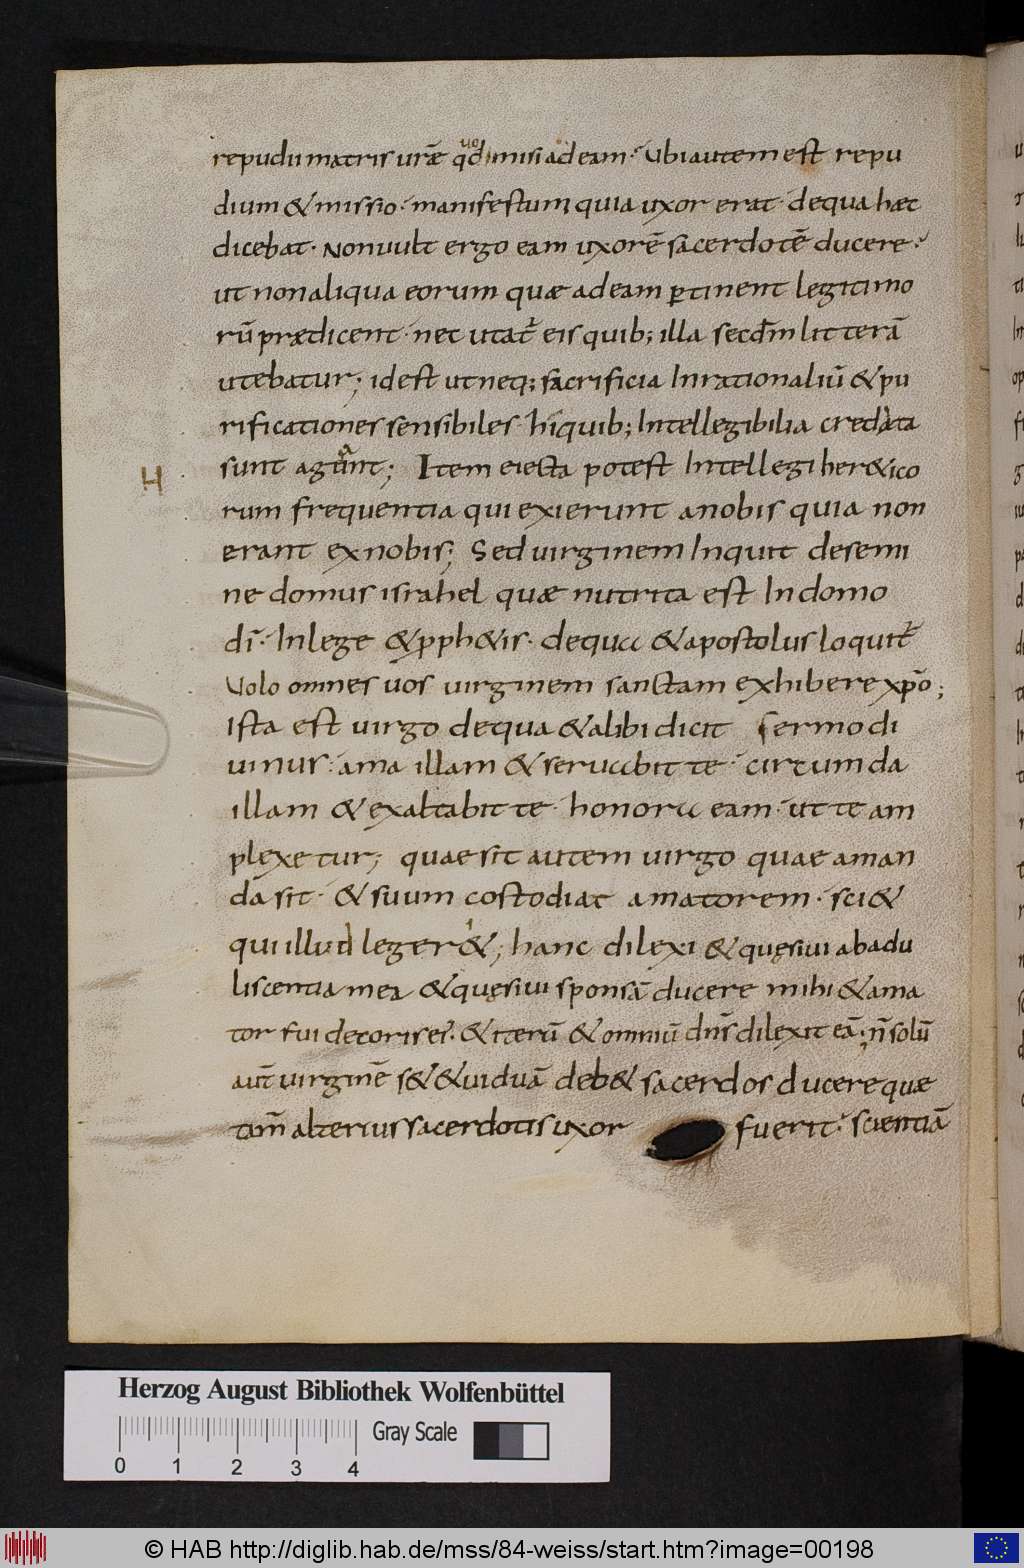 repudii matris urǣ q̄d dimisi ad eam · Ubi autem est repu
uo
dium & missio · manifestum quia uxor erat · de qua hæc
dicebat · Non uult ergo eam uxorē sacerdotē ducere ·
ut non aliqua eorum quæ ad eam ꝑtinent legitimo
rū prædicent · nec utat̄ eis quib; illa secd̄m litterā
utebatur; id est ut neq; sacrificia Inrationaliū & pu
rificationes sensibiles hi quib; Intellegibilia credita
a
sunt agunt; Item eiecta potest Intellegi her&ico
H
rum frequentia qui exierunt a nobis quia non
erant ex nobis; Sed uirginem Inquit de semi
ne domus israhel quæ nutrita est In domo
dī · In lege & pph&is · de qua & apostolus loquit̄
Uolo omnes uos uirginem sanctam exhibere xp̄o;
Ista est uirgo de qua & alibi dicit sermo di
uinus · ama illam & seruabit te · circumda
illam & exaltabit te · honora eam · ut te am
plexetur; quae sit autem uirgo quae aman
da sit · & suum costodiat amatorem · sci&
qui illud leger&; hanc dilexi & quęsiui ab adu
liscentia mea & quęsiui sponsā ducere mihi & ama
tor fui decoris ei · & iterū & omniū dn̄s dilexit eā · n̄ solū
aut̄ uirginē s& & uiduā deb& sacerdos ducere quæ
tam̄ alterius sacerdotis uxor fuerit · scientiā
Herzog August Bibliothek Wolfenbüttel
Gray Scale
0 1 2 3 4
© HAB http://diglib.hab.de/mss/84-weiss/start.htm?image=00198